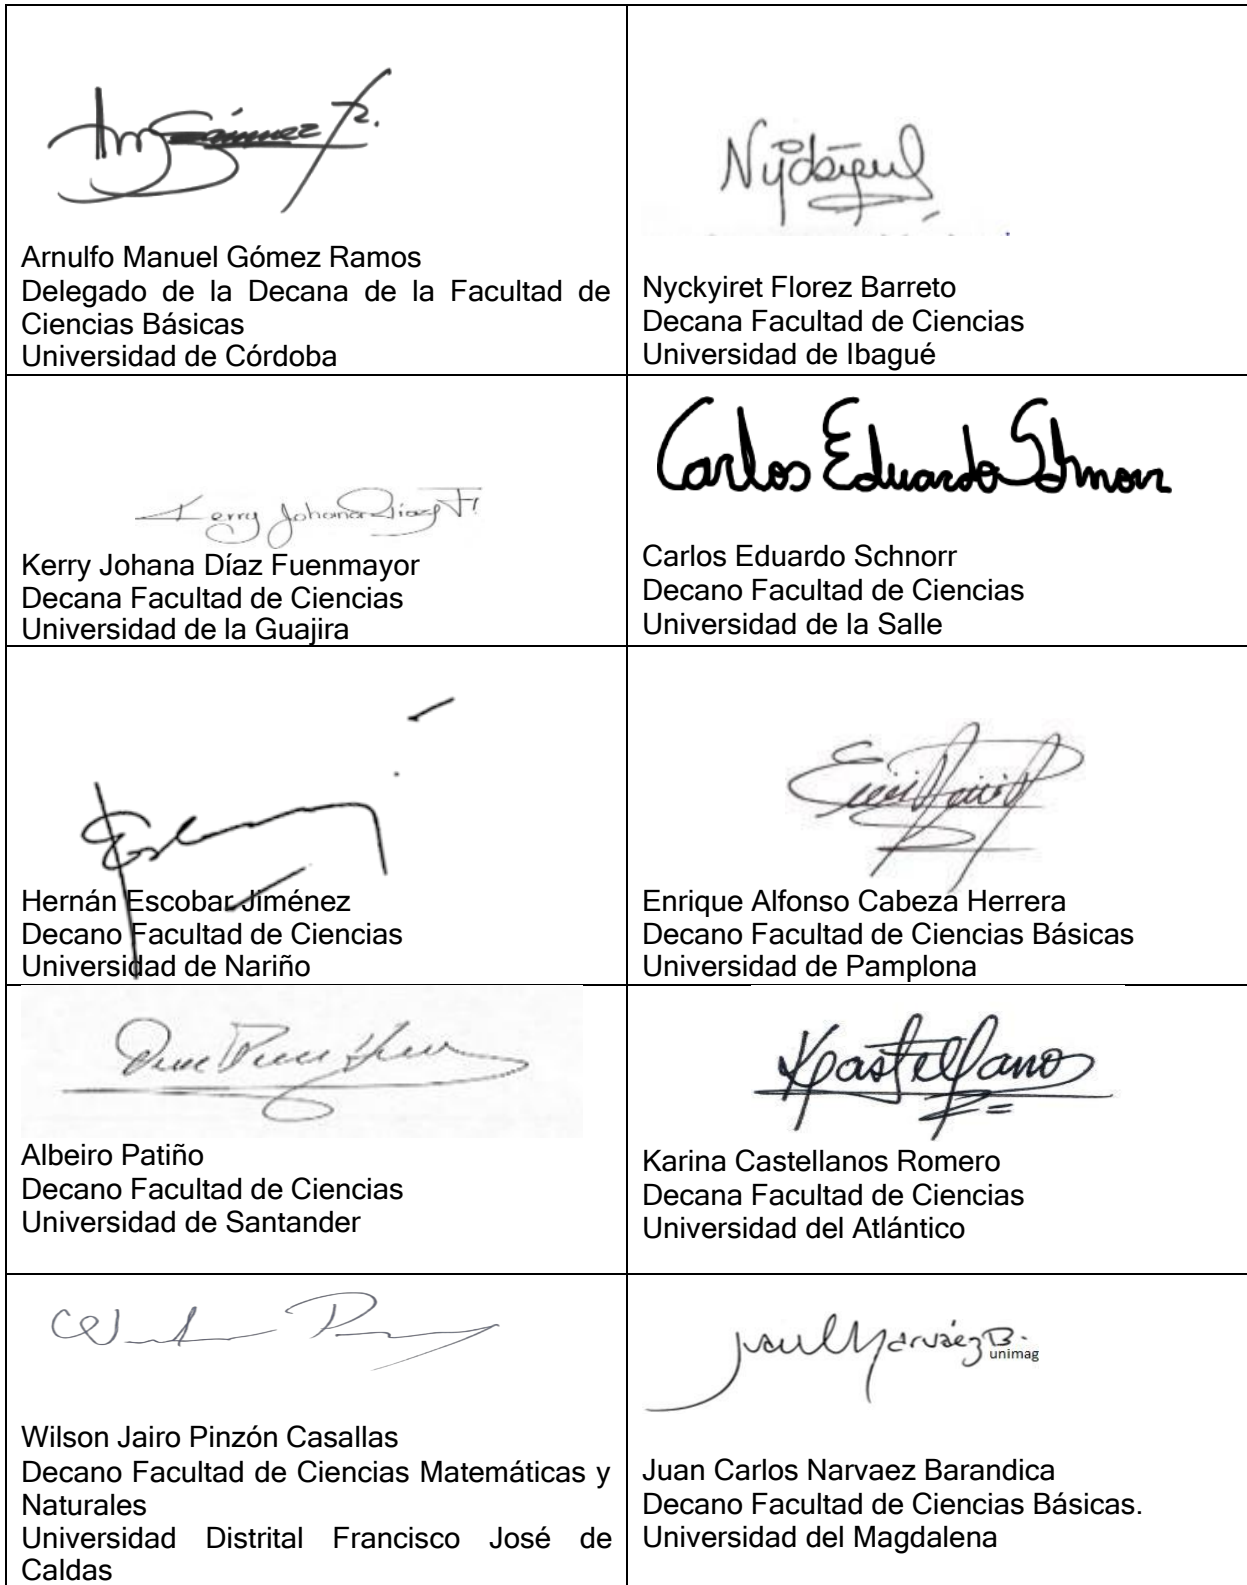 Arnulfo Manuel Gómez Ramos
Delegado de la Decana de la Facultad de
Ciencias Básicas
Universidad de Córdoba
Nyckyiret Florez Barreto
Decana Facultad de Ciencias
Universidad de Ibagué
Kerry Johana Díaz F.
Kerry Johana Díaz Fuenmayor
Decana Facultad de Ciencias
Universidad de la Guajira
Carlos Eduardo
Carlos Eduardo Schnorr
Decano Facultad de Ciencias
Universidad de la Salle
Hernán Escobar Jiménez
Decano Facultad de Ciencias
Universidad de Nariño
Enrique Alfonso Cabeza Herrera
Decano Facultad de Ciencias Básicas
Universidad de Pamplona
Albeiro Patiño
Decano Facultad de Ciencias
Universidad de Santander
Karina Castellanos Romero
Decana Facultad de Ciencias
Universidad del Atlántico
Wilson Jairo Pinzón Casallas
Decano Facultad de Ciencias Matemáticas y
Naturales
Universidad Distrital Francisco José de
Caldas
Narváez B.
unimag
Juan Carlos Narvaez Barandica
Decano Facultad de Ciencias Básicas.
Universidad del Magdalena